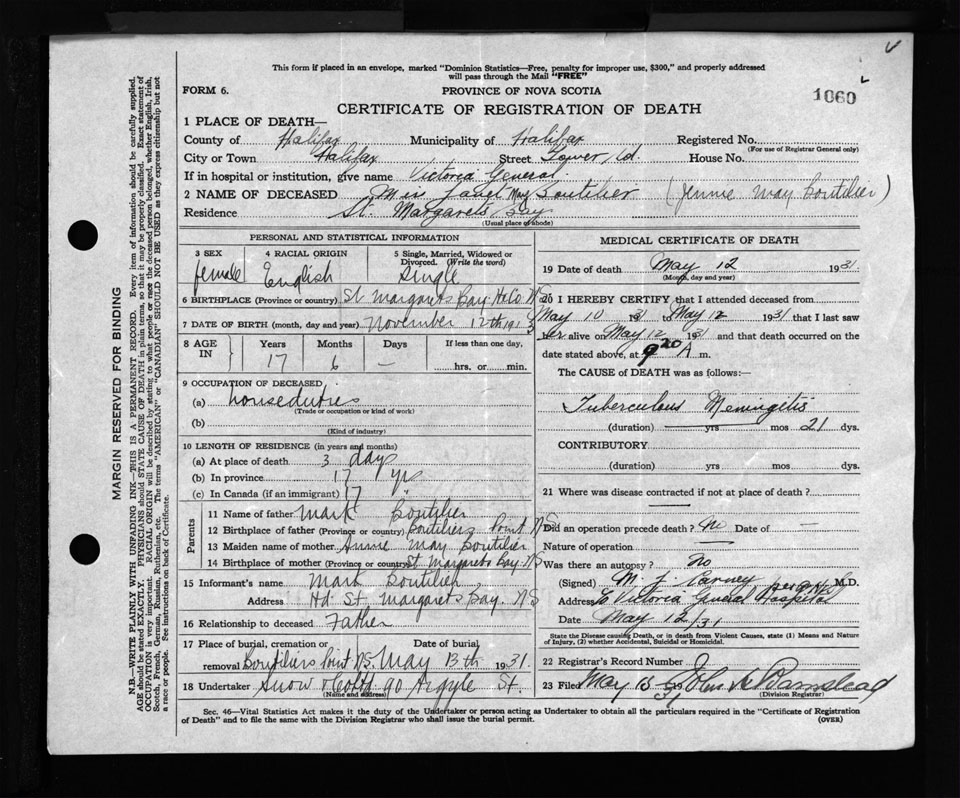 This form if placed in an envelope, marked "Dominion Statistics—Free, penalty for improper use, $300," and properly addressed
will pass through the Mail "FREE"
FORM 6.
PROVINCE OF NOVA SCOTIA
1060
CERTIFICATE OF REGISTRATION OF DEATH
1 PLACE OF DEATH—
County of Halifax Municipality of Halifax Registered No.
(For use of Registrar General only)
City or Town Halifax Street Tower Rd. House No.
If in hospital or institution, give name Victoria General.
2 NAME OF DECEASED Miss Janet May Boutilier (Jennie May Boutilier)
Residence St. Margarets Bay
(Usual place of abode)
PERSONAL AND STATISTICAL INFORMATION
3 SEX female
4 RACIAL ORIGIN English
5 Single, Married, Widowed or Divorced. (Write the word) Single
6 BIRTHPLACE (Province or country) St Margarets Bay Hx Co. NS
7 DATE OF BIRTH (month, day and year) November 12th 1913
8 AGE IN Years 17 Months 6 Days — If less than one day, hrs. or min.
9 OCCUPATION OF DECEASED
(a) houseduties
(Trade or occupation or kind of work)
(b)
(Kind of industry)
10 LENGTH OF RESIDENCE (in years and months)
(a) At place of death 3 days
(b) In province 17 yrs
(c) In Canada (if an immigrant) 17 "
Parents
11 Name of father Mark Boutilier
12 Birthplace of father (Province or country) Boutiliers Point NS
13 Maiden name of mother Annie May Boutilier
14 Birthplace of mother (Province or country) St Margarets Bay NS
15 Informant's name Mark Boutilier,
Address Hd. St. Margarets Bay. NS
16 Relationship to deceased Father
17 Place of burial, cremation or removal Boutiliers Point NS. Date of burial May 13th 1931.
18 Undertaker Snow & Co Ltd. 90 Argyle St.
(Name and address)
MEDICAL CERTIFICATE OF DEATH
19 Date of death May 12 1931
(Month, day and year)
20 I HEREBY CERTIFY that I attended deceased from
May 10 31 to May 12 1931 that I last saw
her alive on May 12 1931 and that death occurred on the
date stated above, at 9 20 A m.
The CAUSE OF DEATH was as follows:—
Tuberculous Meningitis
(duration) yrs mos 21 dys.
CONTRIBUTORY
(duration) yrs mos dys.
21 Where was disease contracted if not at place of death?
Did an operation precede death? no Date of —
Nature of operation —
Was there an autopsy? no
(Signed) M. J. Carney M.D.
Address Victoria General Hospital
Date May 12/31
State the Disease causing Death, or in death from Violent Causes, state (1) Means and Nature
of Injury, (2) whether Accidental, Suicidal or Homicidal.
22 Registrar's Record Number
23 Filed May 13 1931 John A Barnstead
(Division Registrar)
Sec. 46—Vital Statistics Act makes it the duty of the Undertaker or person acting as Undertaker to obtain all the particulars required in the "Certificate of Registration
of Death" and to file the same with the Division Registrar who shall issue the burial permit.
(OVER)
MARGIN RESERVED FOR BINDING
N.B.—WRITE PLAINLY WITH UNFADING INK—THIS IS A PERMANENT RECORD. Every item of information should be carefully supplied.
AGE should be stated EXACTLY. PHYSICIANS should STATE CAUSE OF DEATH in plain terms, so that it may be properly classified. Exact statement of
OCCUPATION is very important. RACIAL ORIGIN will be described by stating to what people or race the deceased person belonged, whether English, Irish,
Scotch, French, German, Russian, Ruthenian, etc. The terms "AMERICAN" or "CANADIAN" SHOULD NOT BE USED as they express citizenship but not
a race or people. See instructions on back of Certificate.